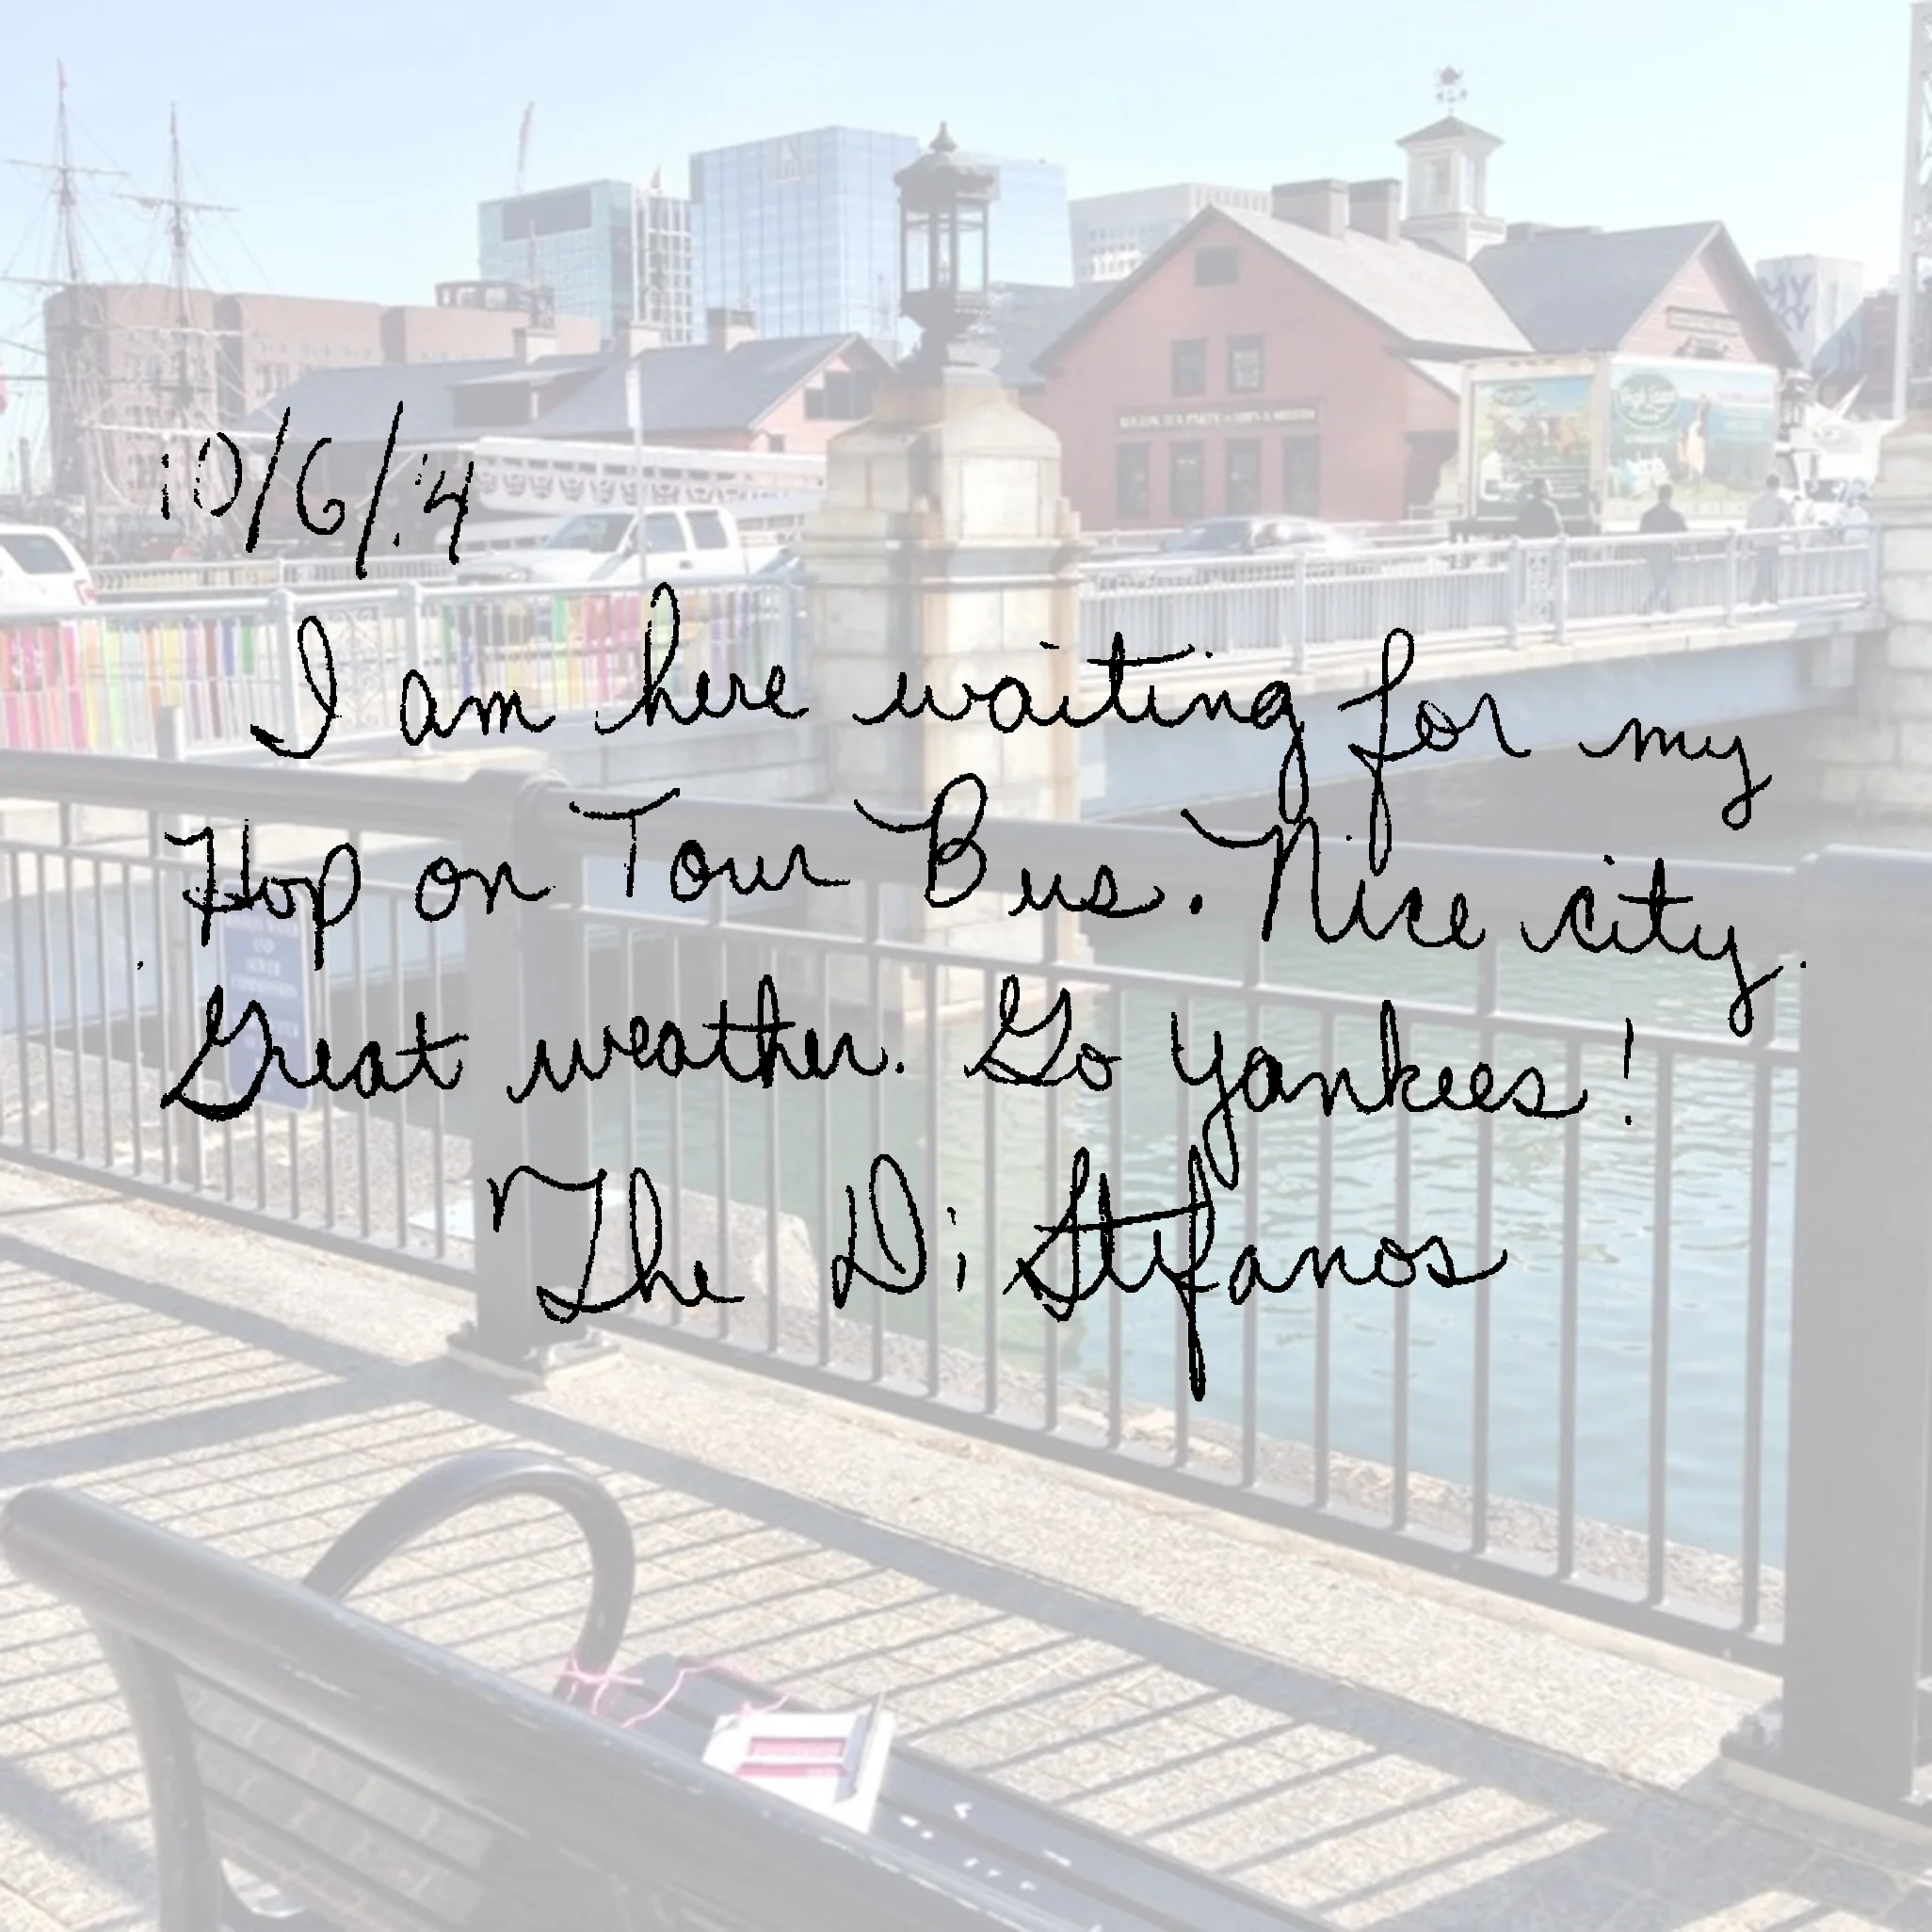 BOSTON TEA PARTY SHIPS & MUSEUM
10/6/14
I am here waiting for my
Hop on Tour Bus. Nice city.
Great weather. Go Yankees!
The DiStefanos